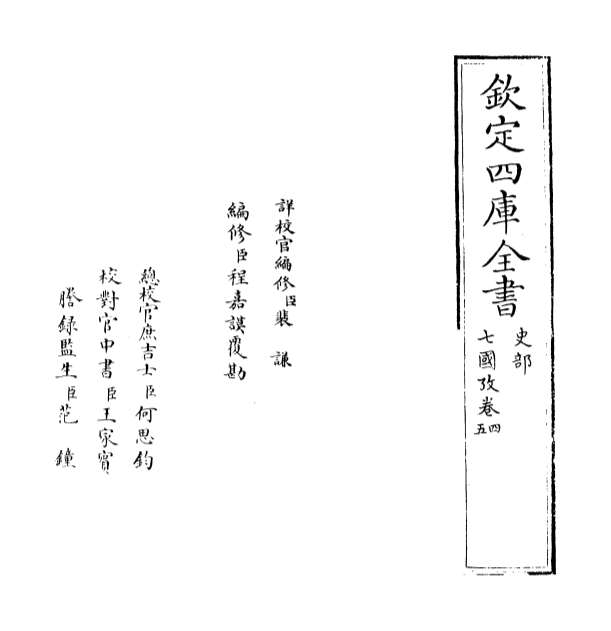 欽定四庫全書
史部
七國攷卷四五
詳校官編修臣裴謙
編修臣程嘉謨覆勘
總校官庶吉士臣何思鈞
校對官中書臣王家賓
謄録監生臣范鐘